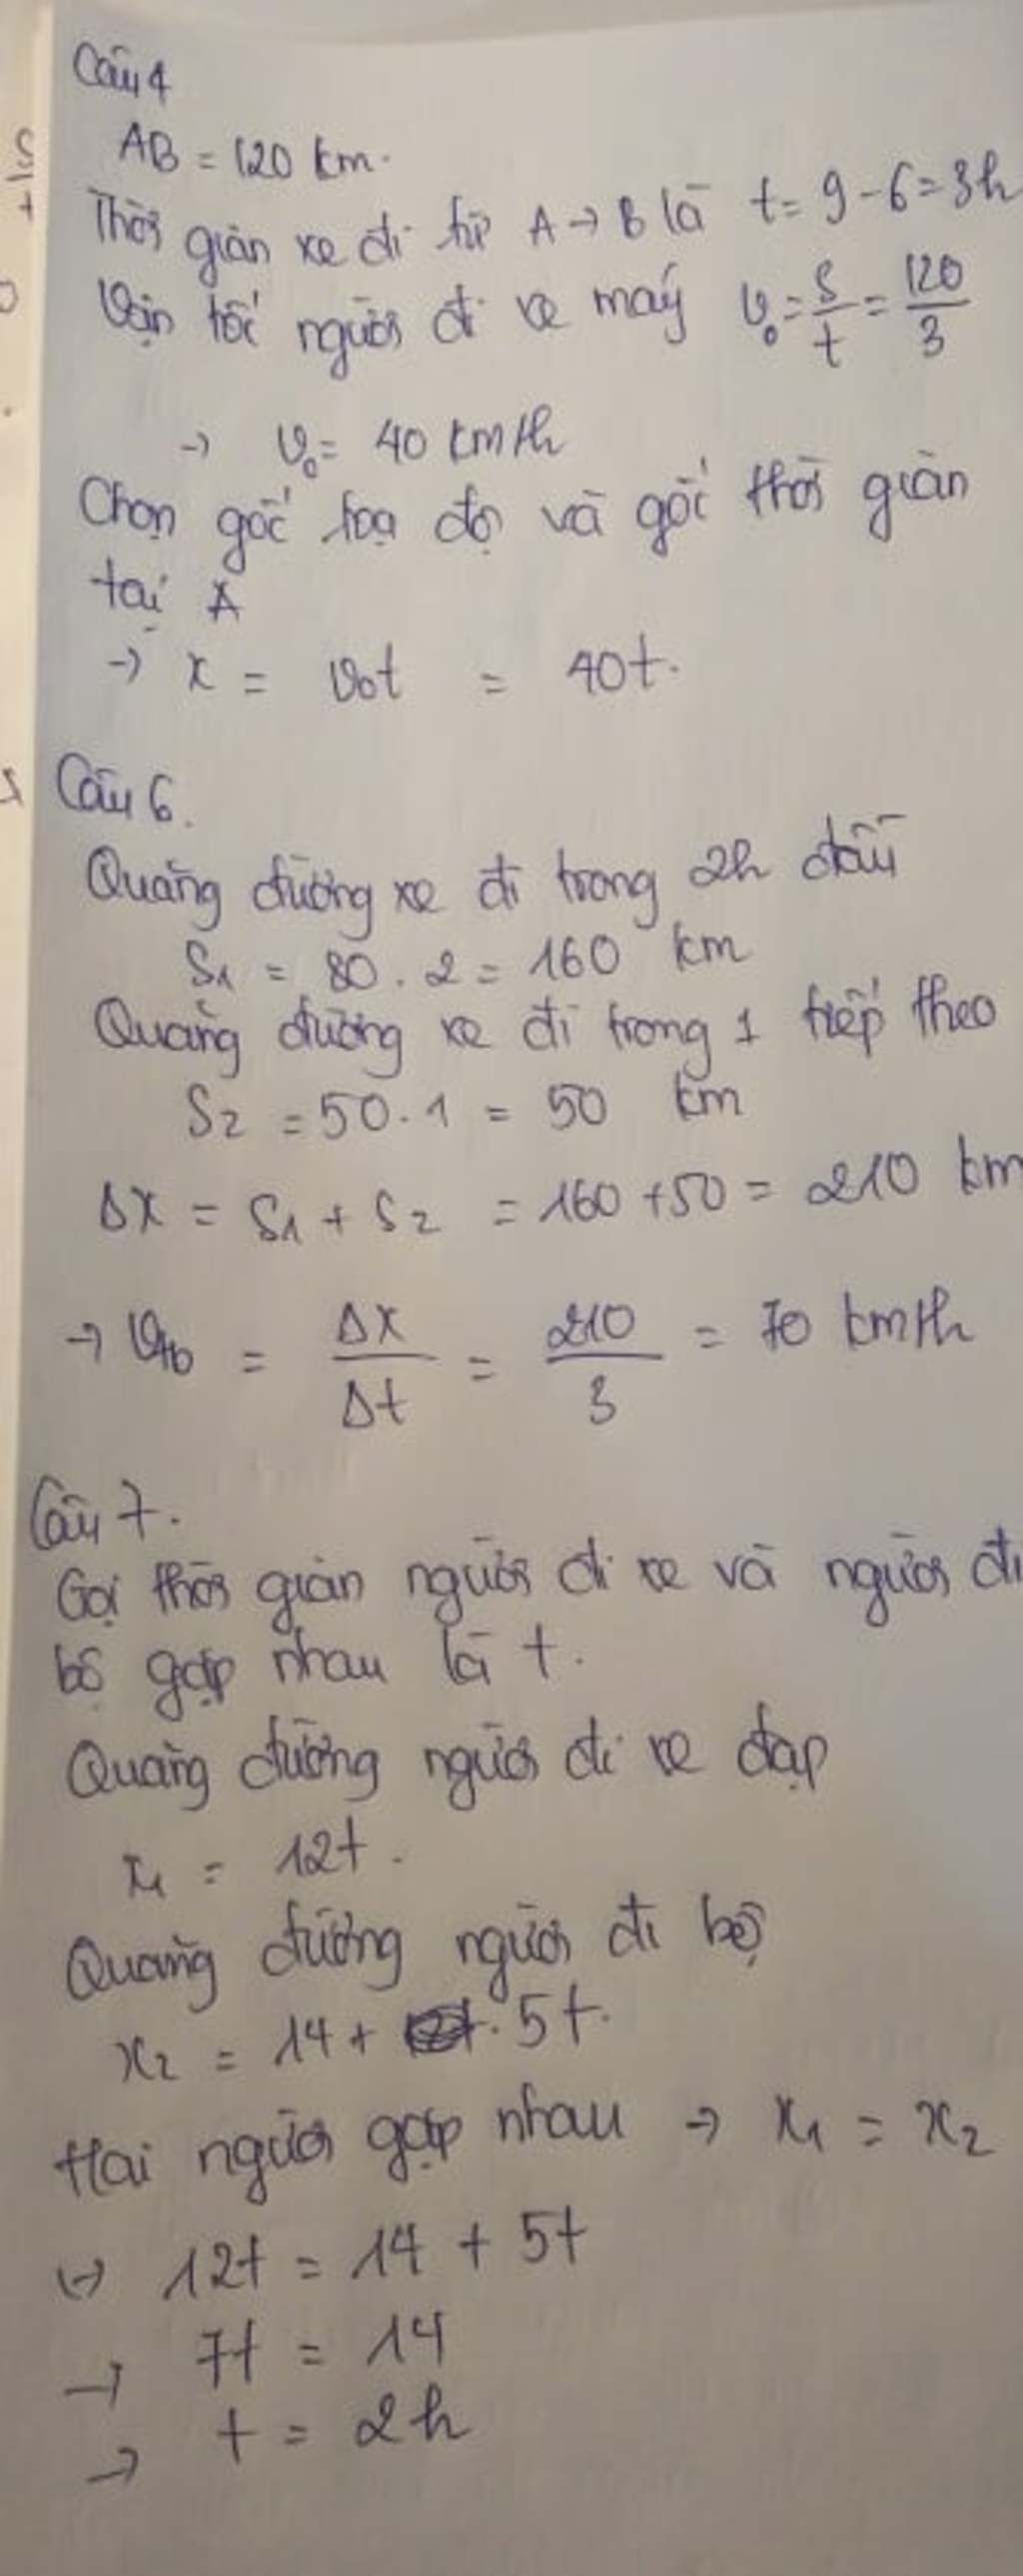 Câu 4
AB = 120 km.
Thời gian xe đi từ A → B là t = 9 - 6 = 3h
Vận tốc người đi xe máy v₀ = s/t = 120/3
→ v₀ = 40 km/h
Chọn gốc toạ độ và gốc thời gian
tại A
→ x = v₀t = 40t.
Câu 6.
Quãng đường xe đi trong 2h đầu
S₁ = 80 . 2 = 160 km
Quãng đường xe đi trong 1 tiếp theo
S₂ = 50 . 1 = 50 km
Δx = S₁ + S₂ = 160 + 50 = 210 km
→ Vtb = Δx/Δt = 210/3 = 70 km/h
Câu 7.
Gọi thời gian người đi xe và người đi
bộ gặp nhau là t.
Quãng đường người đi xe đạp
x₁ = 12t.
Quãng đường người đi bộ
x₂ = 14 + 5t.
Hai người gặp nhau → x₁ = x₂
↔ 12t = 14 + 5t
→ 7t = 14
→ t = 2h